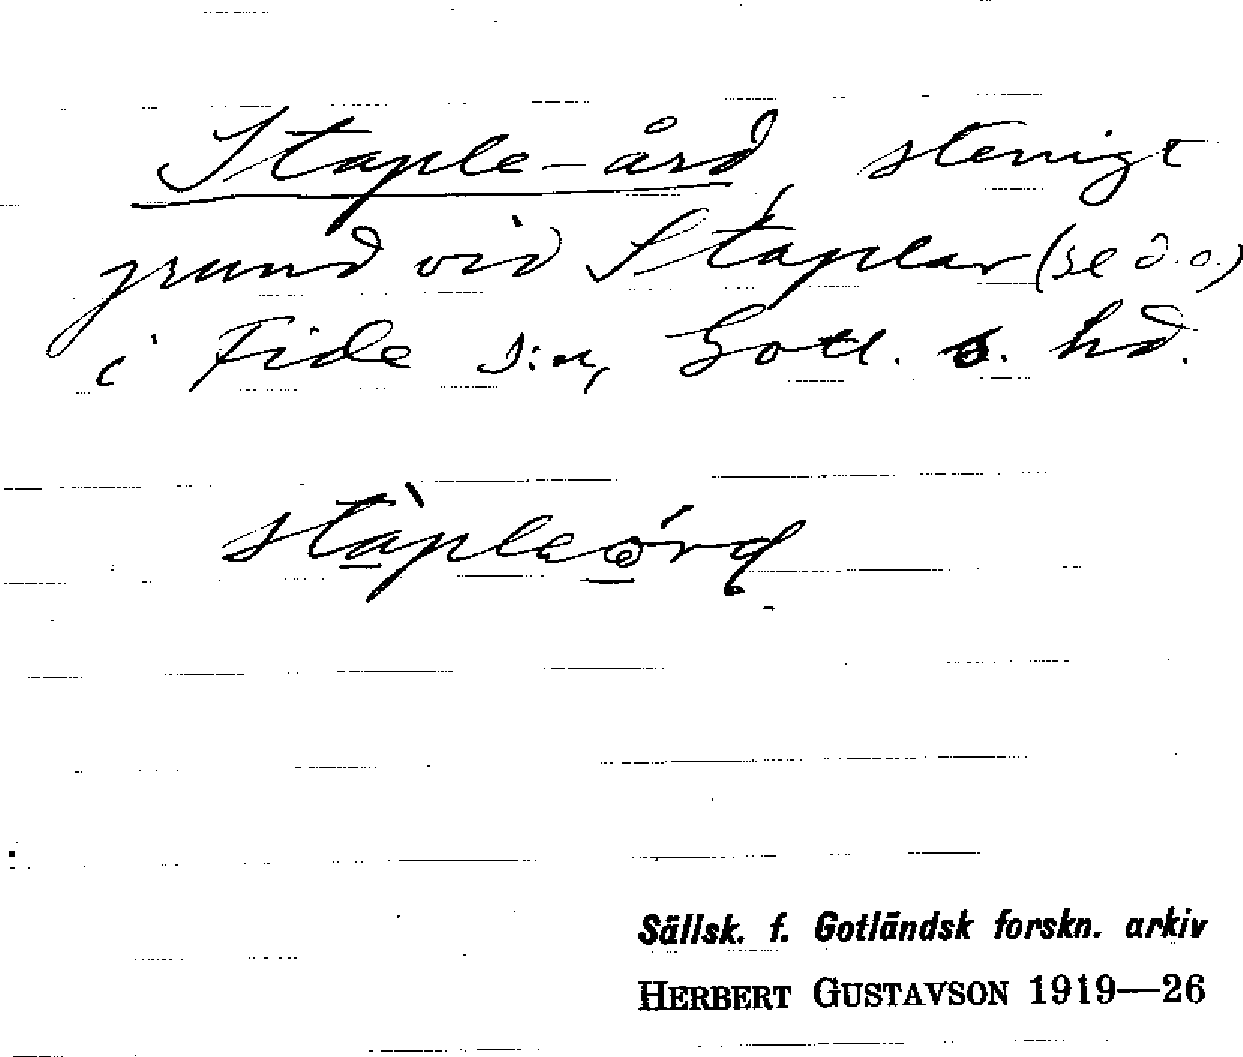 Staple-ård, stenigt
grund vid Staplar (se d.o.)
i Fide s:n, Gotl. s. hd.
stàpleo̱rd
Sällsk. f. Gotländsk forskn. arkiv
HERBERT GUSTAVSON 1919—26